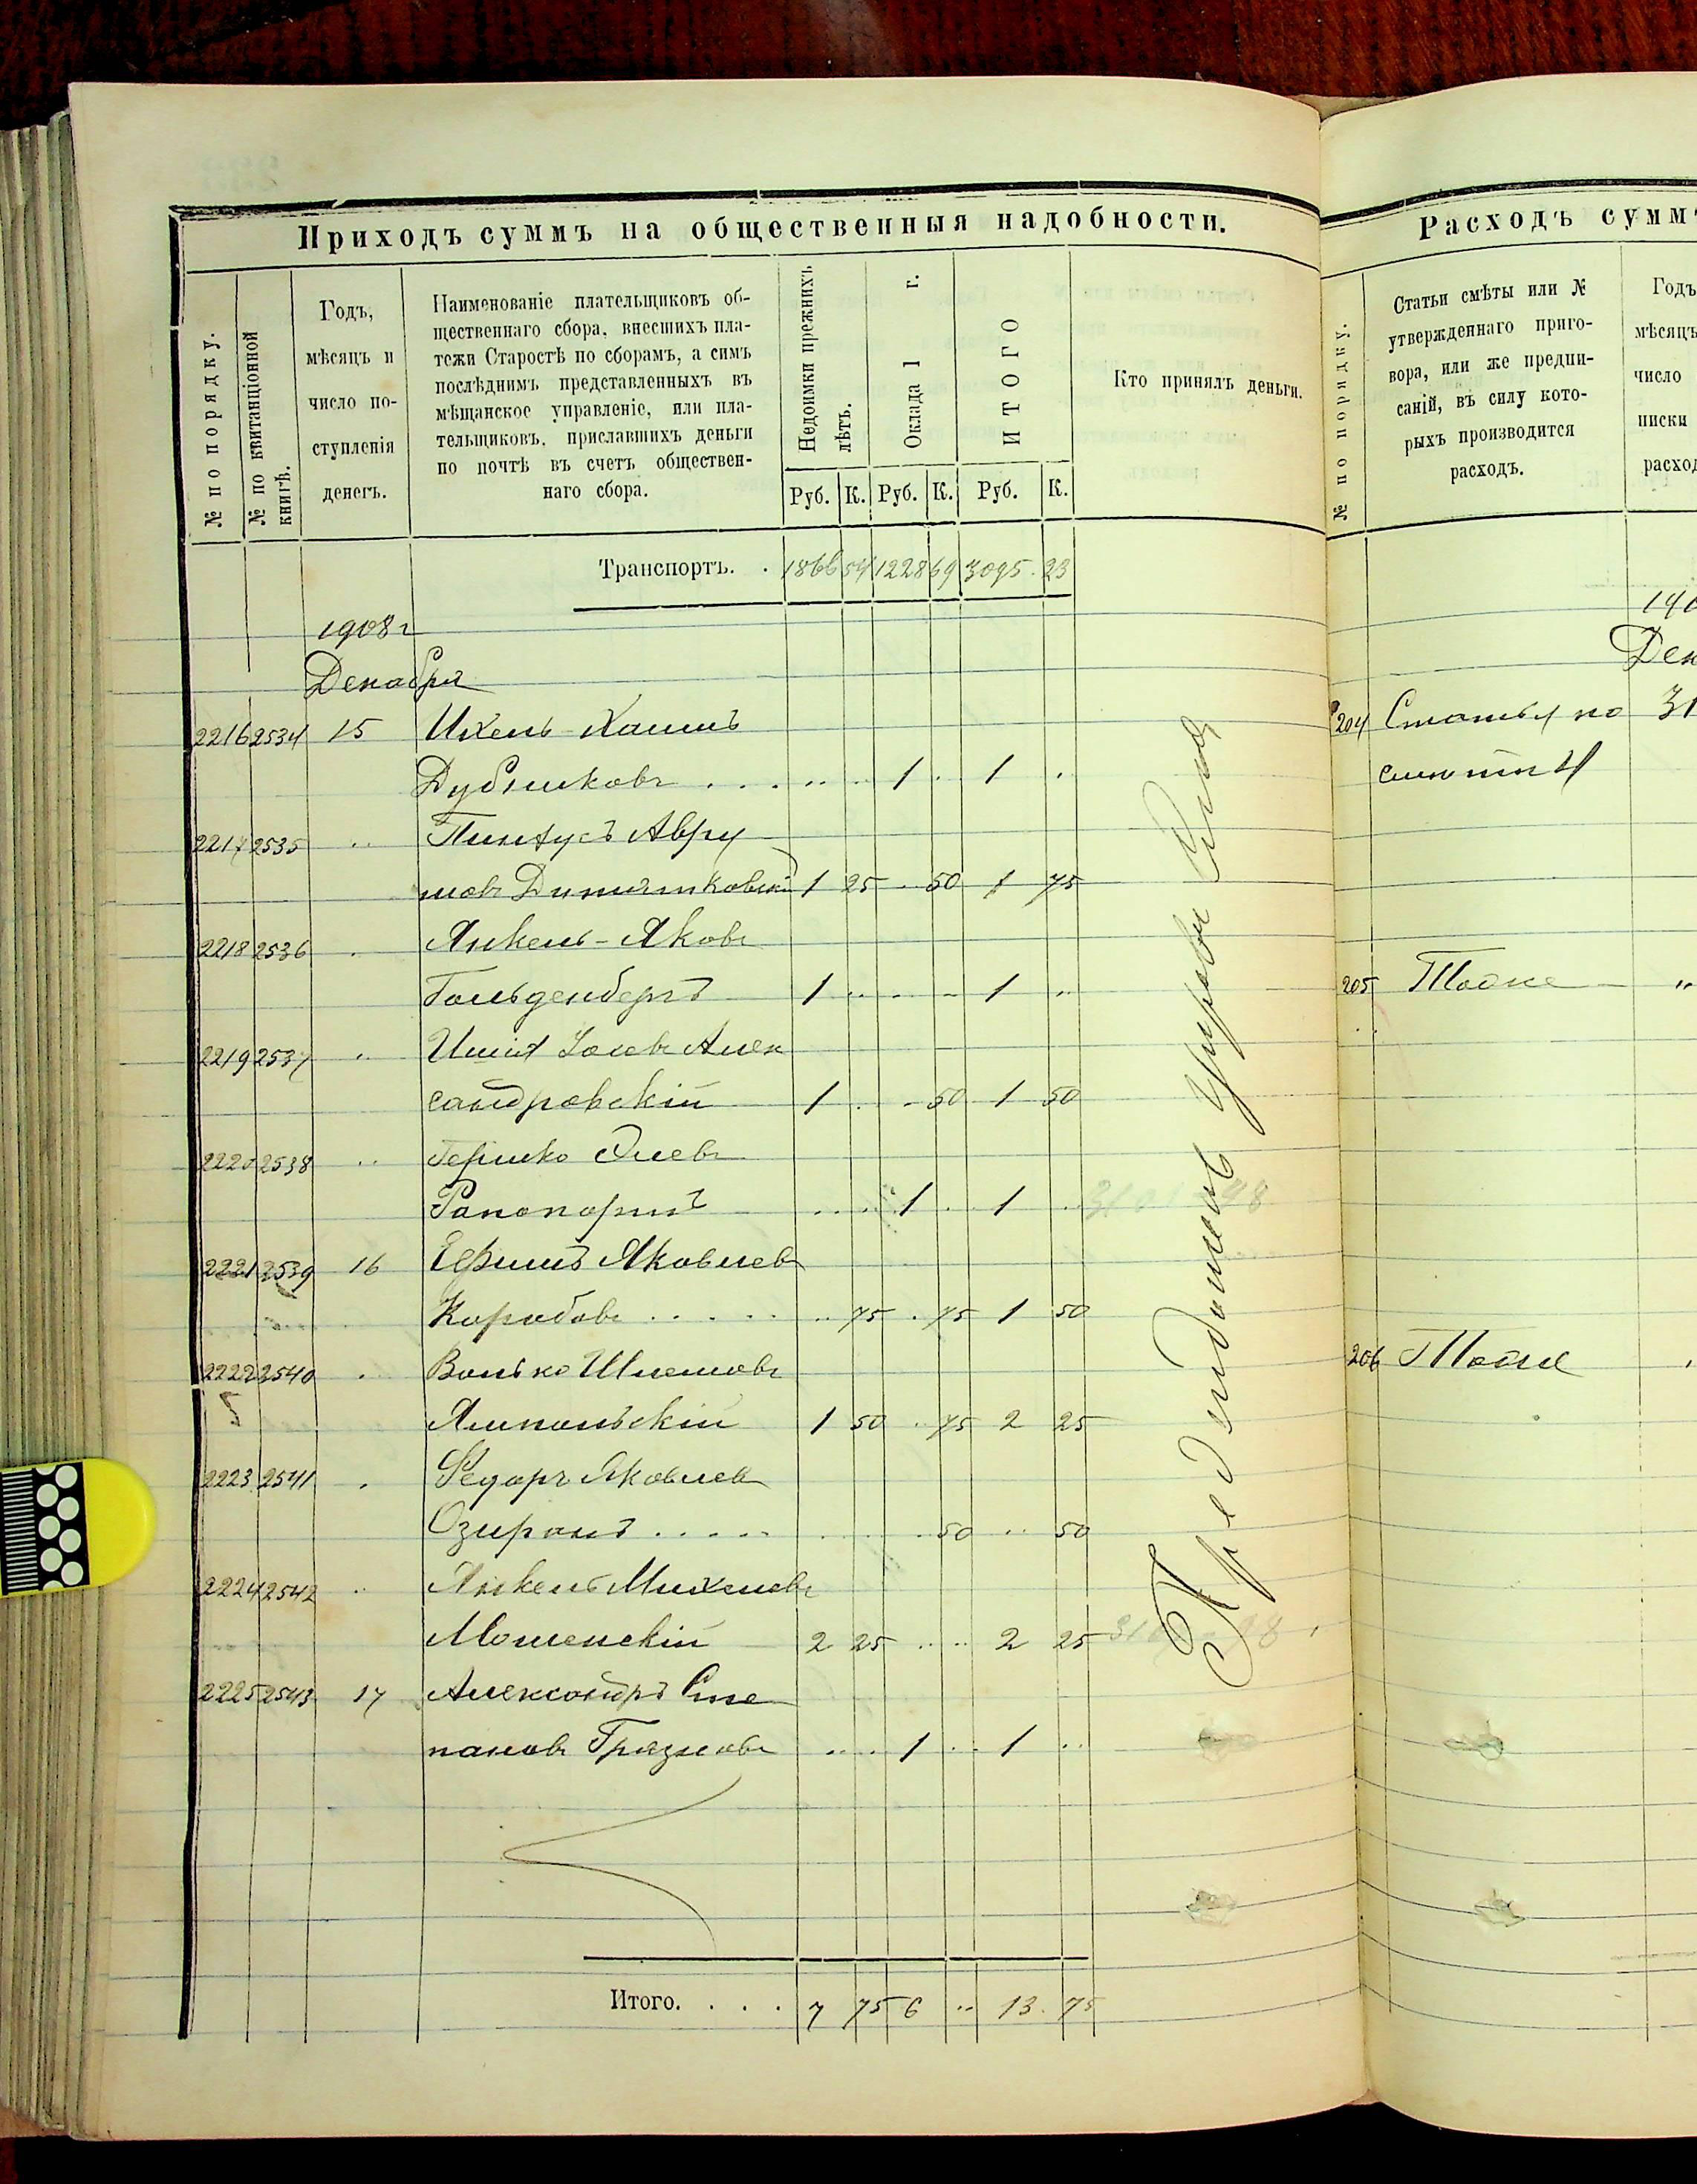 Приходъ суммъ на общественныя надобности.
№ по порядку.
№ по квитанціонной
книгѣ.
Годъ,
мѣсяцъ и
число по-
ступленія
денегъ.
Наименованіе плательщиковъ об-
щественнаго сбора, внесшихъ пла-
тежи Старостѣ по сборамъ, а симъ
послѣднимъ представленныхъ въ
мѣщанское управленіе, или пла-
тельщиковъ, приславшихъ деньги
по почтѣ въ счетъ обществен-
наго сбора.
Недоимки прежнихъ
лѣтъ.
Оклада 1 г.
ИТОГО
Кто принялъ деньги.
Руб. К. Руб. К. Руб. К.
Транспортъ. . 1866 54 1228 69 3095 23
1908 г
Декабря
2216 2534 15 Ихель Хаимъ
Дубинковъ . . . 1 . 1 .
2217 2535 .. Пинхусъ Авру
мовъ 1 25 . 50 1 75
2218 2536 . Янкель-Яковъ
Гольденбергъ 1 .. - - 1 ..
2219 2537 .. Алек
сандровскій 1 . - 50 1 50
2220 2538 .. Гершко
Рапопортъ 1 . 1 .
2221 2539 16 Ефимъ Яковлев
Коробовъ . . . . . .. 75 . 75 1 50
2222 2540 . Волько Шлемовъ
Ямпольскій 1 50 .. 75 2 25
2223 2541 . Федоръ Яковлев
Озиранъ . . . . . 50 .. 50
2224 2542 .. Янкель Михелевъ
Мошенскій 2 25 .. .. 2 25
2225 2543 17 Александръ Сте
пановъ Грязновъ .. . 1 .. 1 ..
Итого. . . . 7 75 6 .. 13 75
Расходъ суммъ
№ по порядку.
Статьи смѣты или №
утвержденнаго приго-
вора, или же предпи-
саній, въ силу кото-
рыхъ производится
расходъ.
Годъ
мѣсяцъ
число
писки
расход
190
Дек
204 Статья по 31
205 Тоже "
206 Тоже